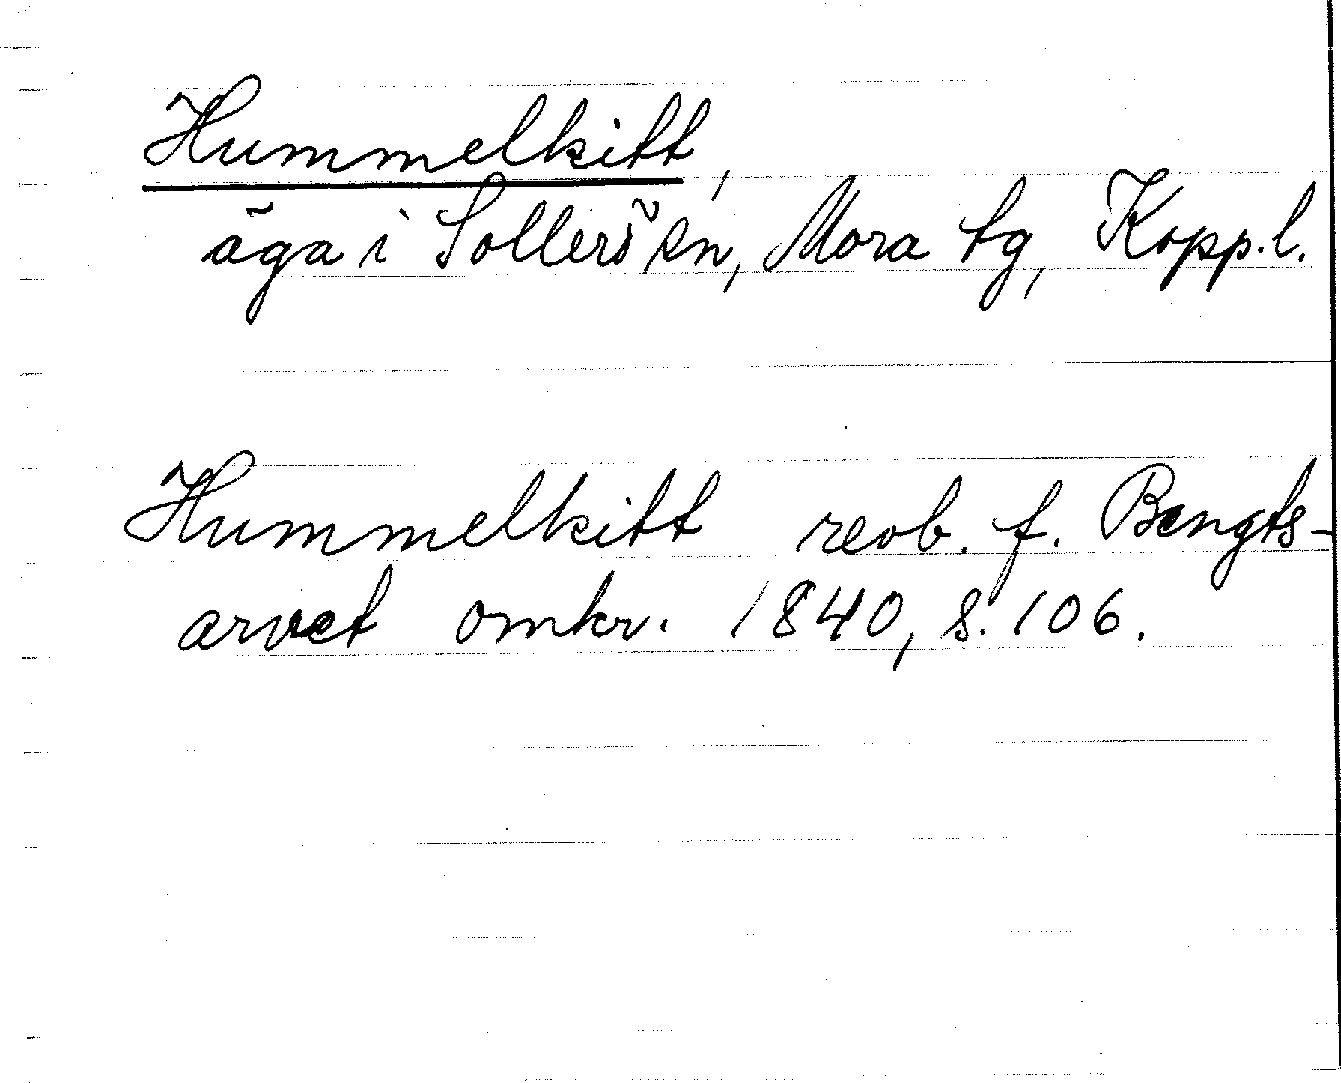 Hummelkitt,
äga i Sollerö sn, Mora tg, Kopp.l.
Hummelkitt revb. f. Bengts-
arvet omkr. 1840, s. 106.